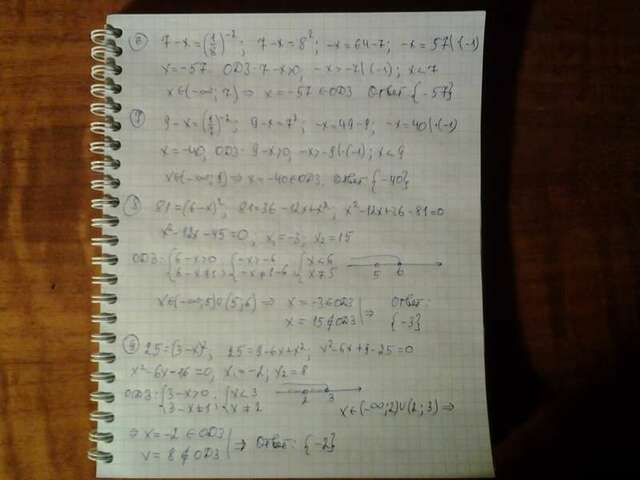 ⑥ 7-x=(1/8)^-2; 7-x=8²; -x=64-7; -x=57|·(-1)
x=-57. ОДЗ: 7-x>0, -x>-7|(-1); x<7
x∈(-∞; 7) ⇒ x=-57∈ОДЗ Ответ {-57}
⑦ 9-x=(1/7)^-2, 9-x=7², -x=49-9, -x=40|·(-1)
x=-40, ОДЗ: 9-x>0, -x>-9|·(-1); x<9
x∈(-∞, 9) ⇒ x=-40∈ОДЗ. Ответ {-40}
⑧ 81=(6-x)², 81=36-12x+x², x²-12x+36-81=0
x²-12x-45=0, x₁=-3, x₂=15
ОДЗ: {6-x>0 {-x>-6 {x<6
{6-x≠1 {-x≠1-6 {x≠5 5 6
x∈(-∞;5)∪(5;6) ⇒ x=-3∈ОДЗ | ⇒ Ответ:
x=15∉ОДЗ {-3}
⑨ 25=(3-x)², 25=9-6x+x², x²-6x+9-25=0
x²-6x-16=0, x₁=-2, x₂=8
ОДЗ: {3-x>0 {x<3 2 3
{3-x≠1 {x≠2 x∈(-∞;2)∪(2;3) ⇒
⇒ x=-2∈ОДЗ | ⇒ Ответ: {-2}
x=8∉ОДЗ